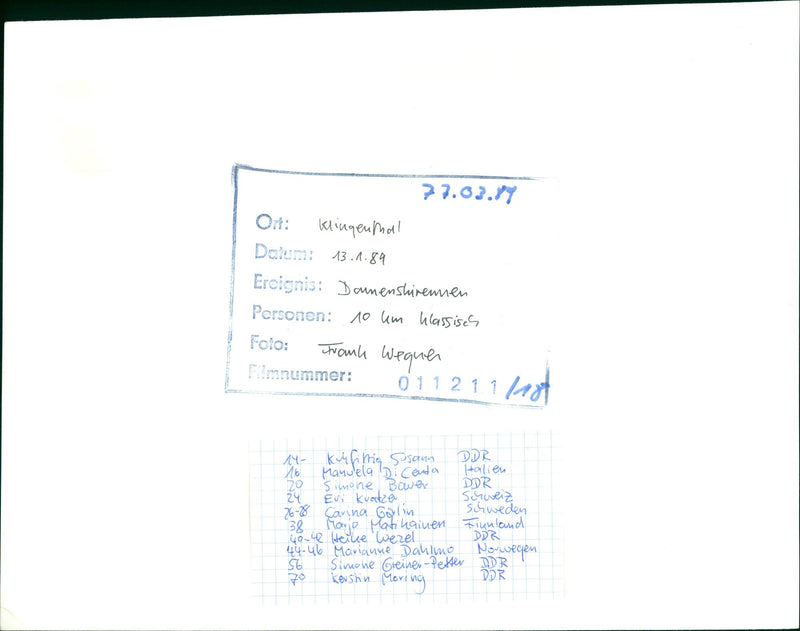 77.03.89
Ort: Klingenthal
Datum: 13.1.89
Ereignis: Damenskirennen
Personen: 10 km klassisch
Foto: Frank Wegner
Filmnummer: 011211/18
14- Susann DDR
16 Manuela Di Centa Italien
20 Simone Bauer DDR
24 Evi Kratzer Schweiz
26-28 Carina Görlin Schweden
38 Marjo Matikainen Finnland
40-42 Heike Wezel DDR
44-46 Marianne Dahlmo Norwegen
56 Simone Greiner-Petter DDR
70 Kerstin Moring DDR